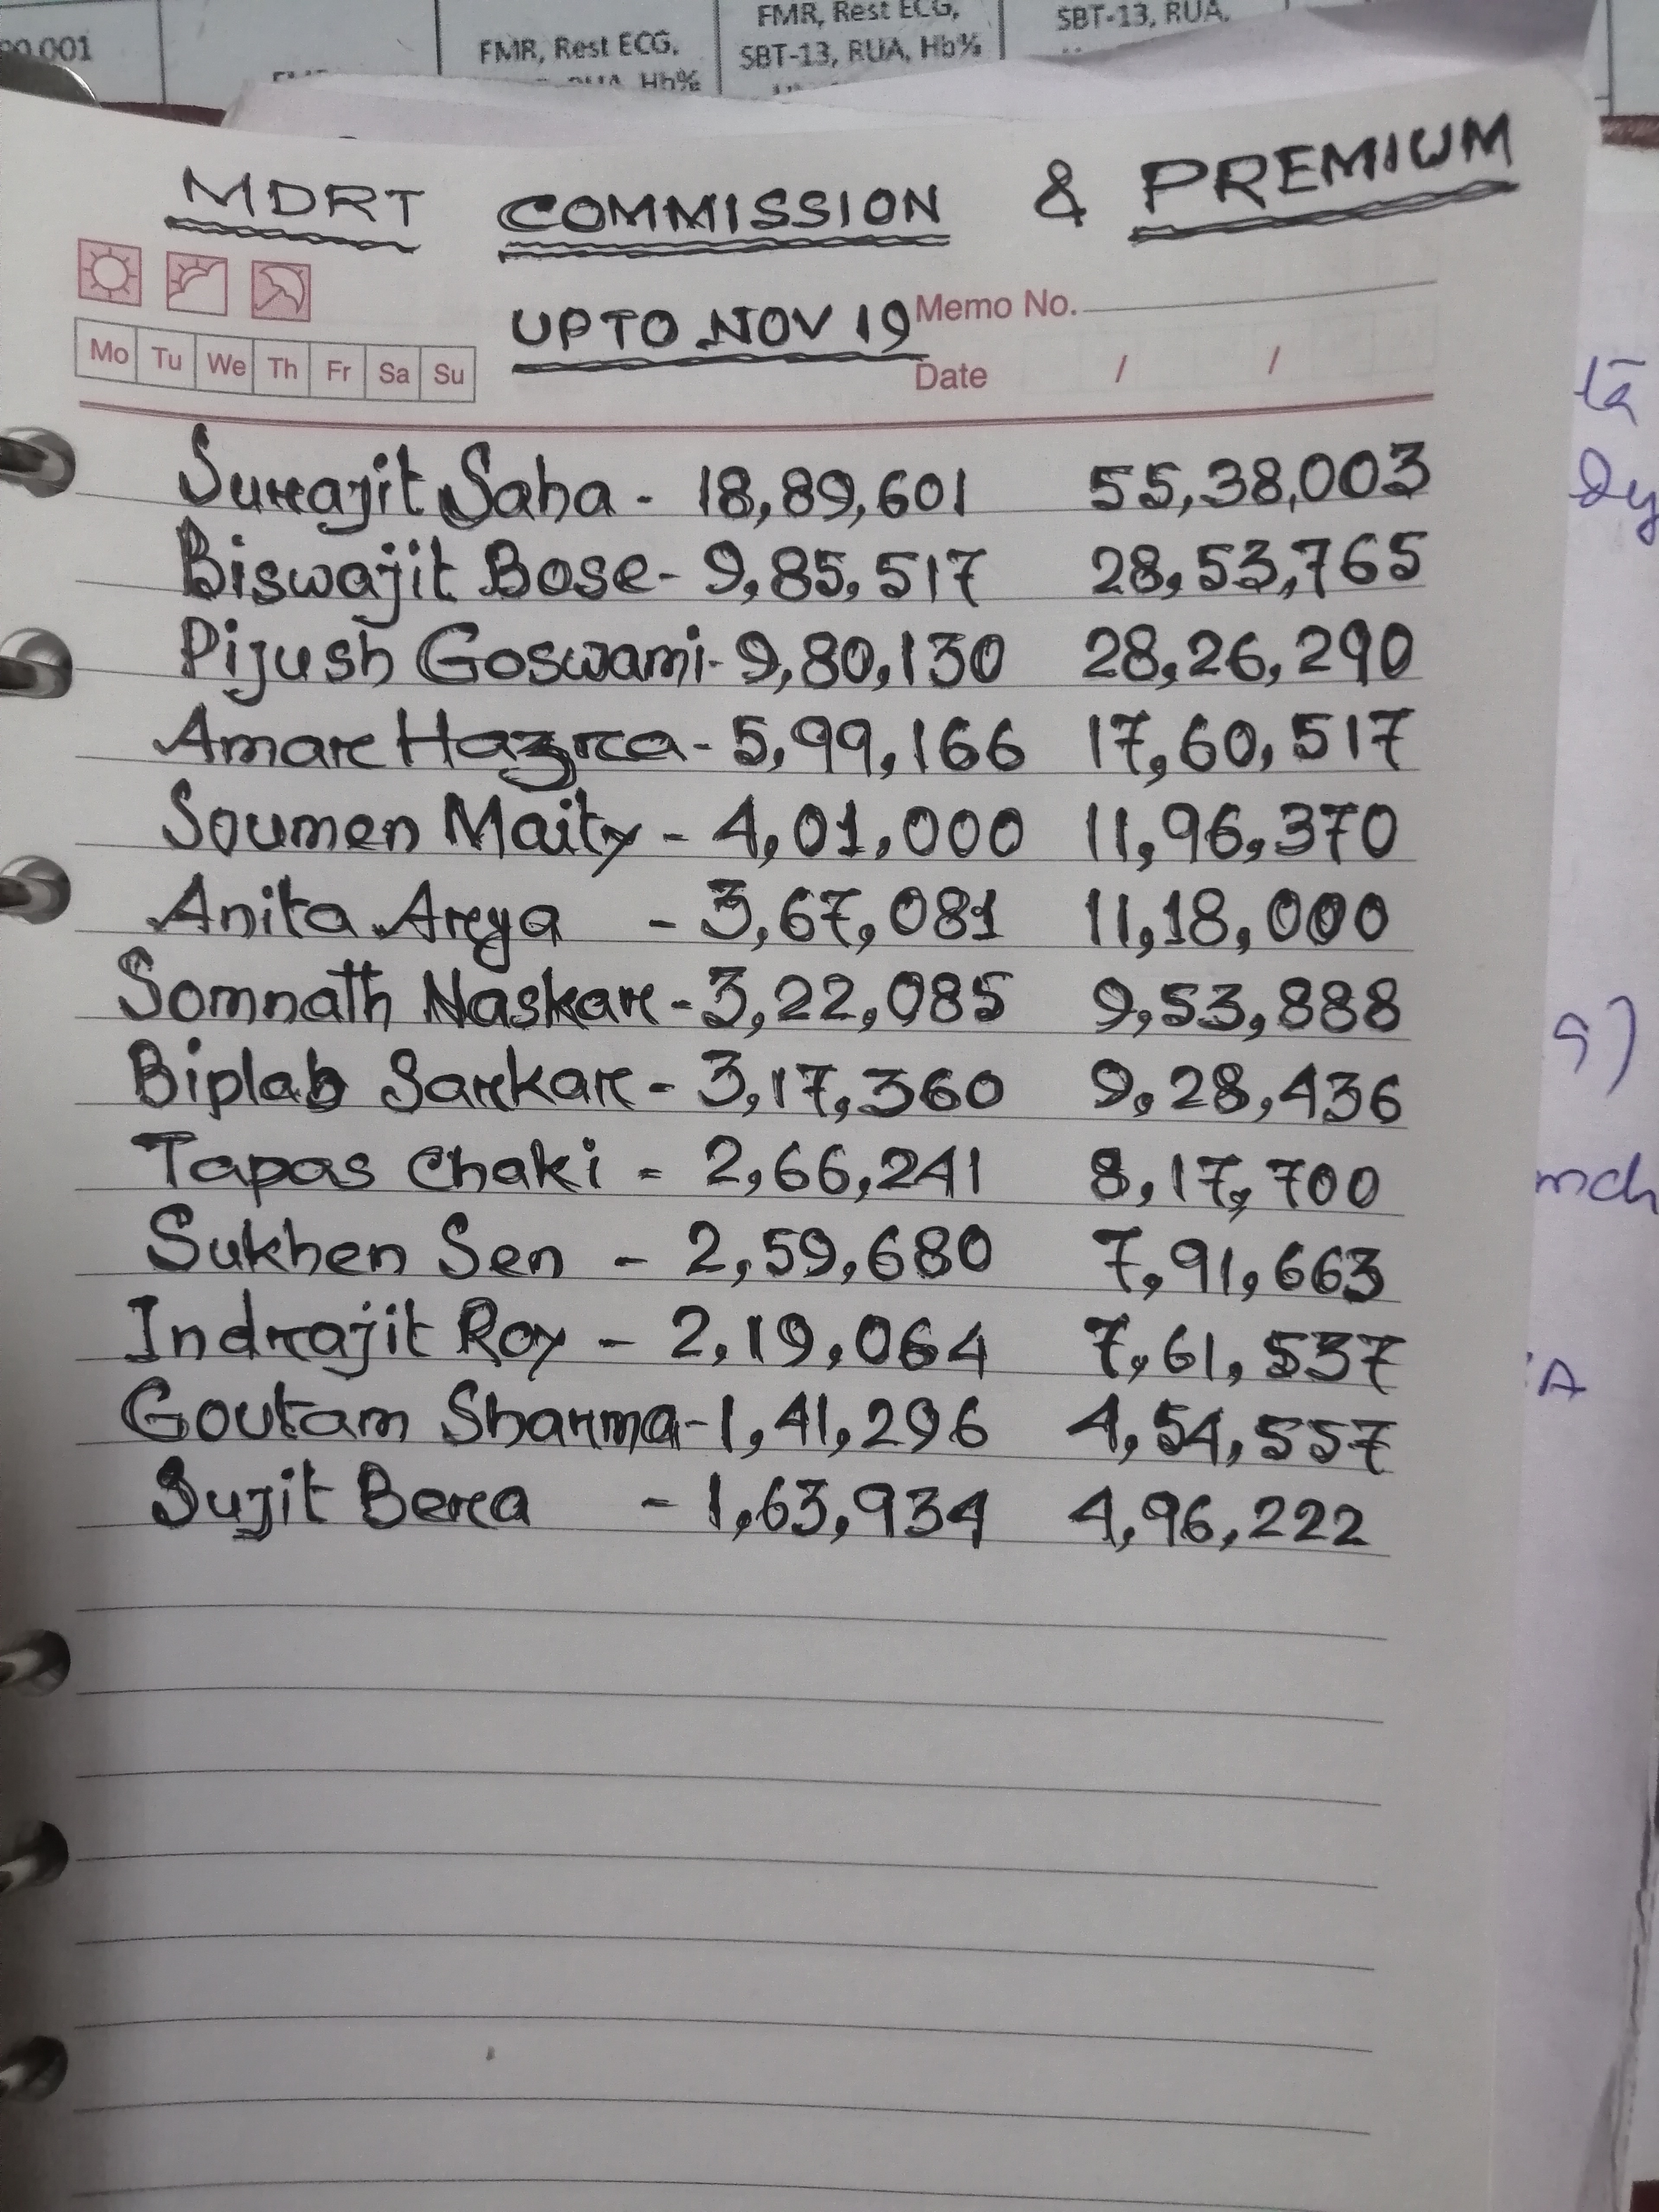 90,001
FMR, Rest ECG,
Hb%
FMR, Rest ECG,
SBT-13, RUA, Hb%
SBT-13, RUA,
MDRT COMMISSION & PREMIUM
UPTO NOV 19
Memo No.
Mo Tu We Th Fr Sa Su
Date / /
Surajit Saha - 18,89,601 55,38,003
Biswajit Bose - 9,85,517 28,53,765
Pijush Goswami - 9,80,130 28,26,290
Amar Hazra - 5,99,166 17,60,517
Soumen Maity - 4,01,000 11,96,370
Anita Arya - 3,67,081 11,18,000
Somnath Naskar - 3,22,085 9,53,888
Biplab Sarkar - 3,17,360 9,28,436
Tapas Chaki - 2,66,241 8,17,700
Sukhen Sen - 2,59,680 7,91,663
Indrajit Roy - 2,19,064 7,61,537
Goutam Sharma - 1,41,296 4,54,557
Sujit Bera - 1,63,934 4,96,222